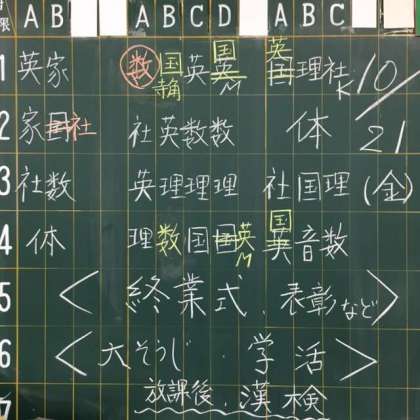 AB ABCD ABC
1 英家 数国英英国 英国理社K 10/21
寺角 M
2 家国社 社英数数 体
3 社数 英理理理 社国理 (金)
4 体 理数国国英 国英音数
M
5 〈終業式.表彰など〉
6 〈大そうじ・学活〉
7 放課後.漢検